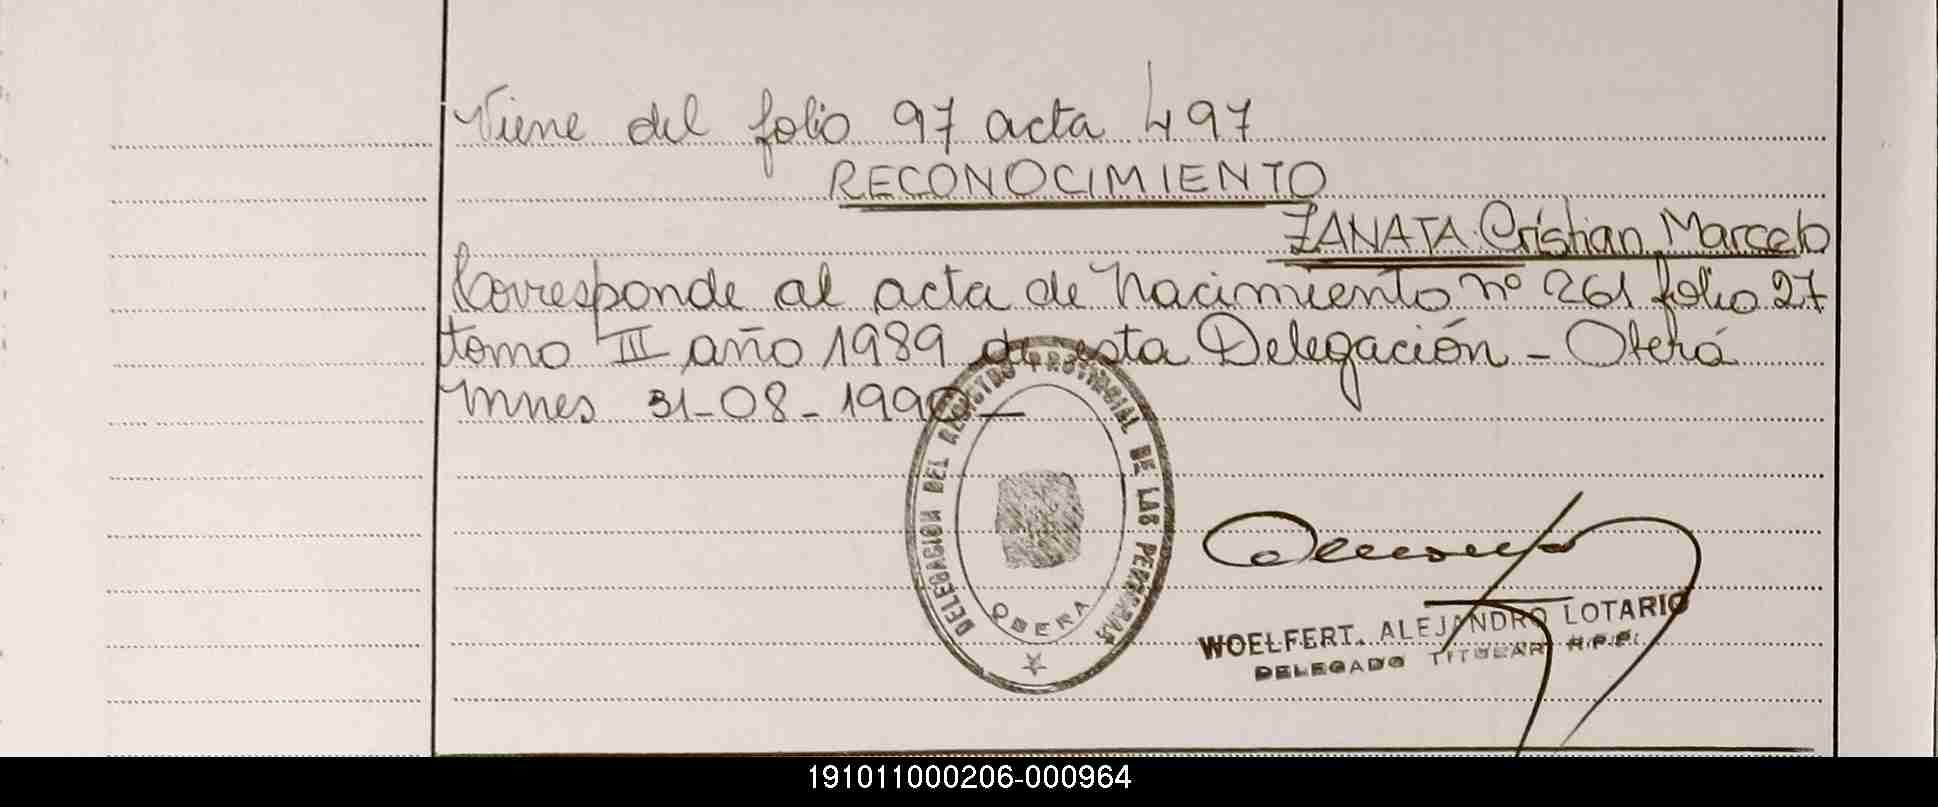 Viene del folio 97 acta 497
RECONOCIMIENTO
ZANATA Cristian Marcelo
Corresponde al acta de Nacimiento nº 261 folio 27
tomo III año 1989 de esta Delegación - Oberá
Mnes 31-08-1990 -
DELEGACION DEL REGISTRO PROVINCIAL DE LAS PERSONAS
OBERA
WOELFERT, ALEJANDRO LOTARIO
DELEGADO TITULAR R.P.P.
191011000206-000964